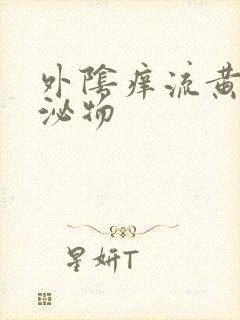 外陰痒流黄
泌物
星妍T